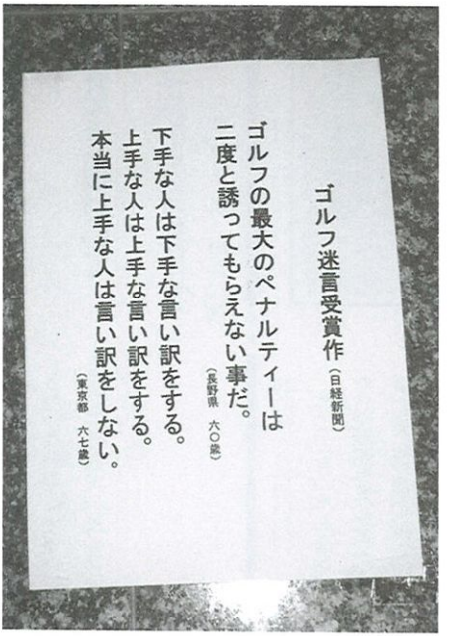 ゴルフ迷言受賞作（日経新聞）
ゴルフの最大のペナルティーは
二度と誘ってもらえない事だ。
（長野県　六〇歳）
下手な人は下手な言い訳をする。
上手な人は上手な言い訳をする。
本当に上手な人は言い訳をしない。
（東京都　六七歳）